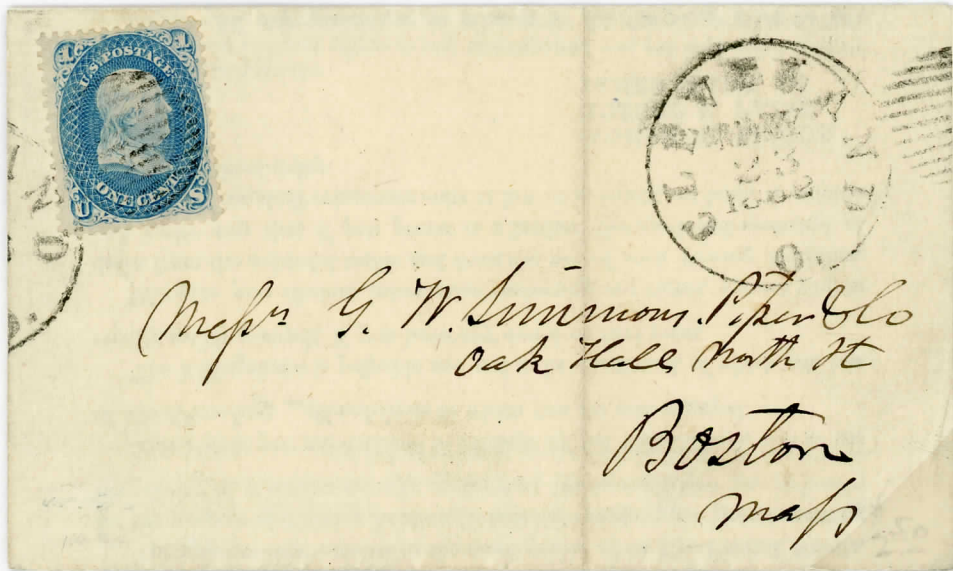 U.S. POSTAGE
ONE CENT
U S
CLEVELAND
O.
Messrs G. W. Simmons. Piper & Co
Oak Hall North St
Boston
Mass